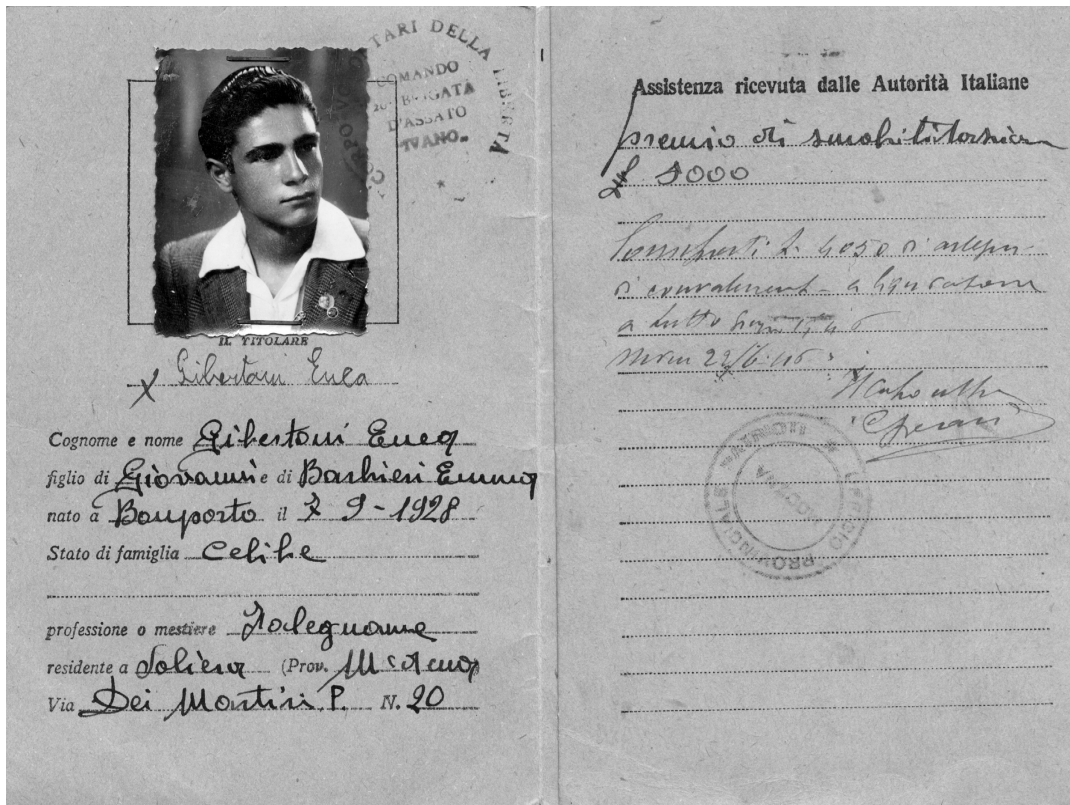 TARI DELLA LIBERTA
COMANDO
BRIGATA
D'ASSALTO
IVANO
IL TITOLARE
Gibertoni Enea
Cognome e nome Gibertoni Enea
figlio di Giovanni e di Barbieri Emma
nato a Bomporto il 7 9-1928
Stato di famiglia Celibe
professione o mestiere Falegname
residente a Soliera (Prov. Modena
Via Dei Martiri P. N. 20
Assistenza ricevuta dalle Autorità Italiane
premio di smobilitazione
1000
a tutto
22/6.46
UFFICIO PROVINCIALE
MODENA